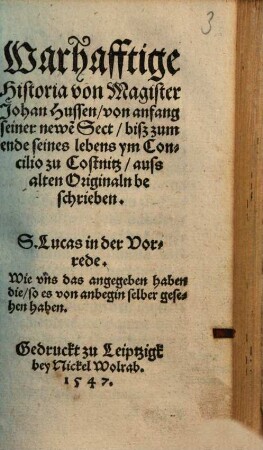 3
Warhafftige
Historia von Magister
Johan Hussen/von anfang
seiner newẽ Sect/bisz zum
ende seines lebens ym Con-
cilio zu Costnitz/auss
alten Originaln be
schrieben.
S. Lucas in der Vor-
rede.
Wie vñs das angegeben haben
die/so es von anbegin selber gese-
hen haben.
Gedruckt zu Leiptzigk
bey Nickel Wolrab.
1547.